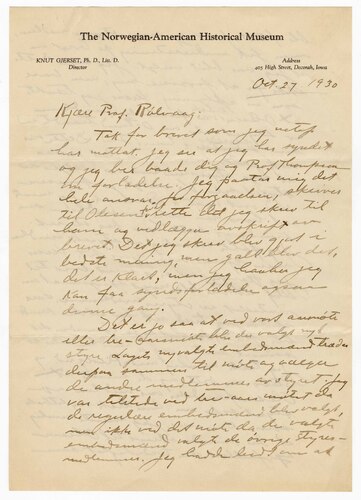 The Norwegian-American Historical Museum
KNUT GJERSET, Ph. D., Lit. D.
Director
Address
405 High Street, Decorah, Iowa
Oct. 27 1930
Kjære Prof. Rolvaag:
Tak for brevet som jeg netop
har mottat. Jeg ser at jeg har syndet
og jeg ber baade dig og Prof Thompson
om forladelse. Jeg paatar mig det
hele ansvar for
til at jeg skrev til
ham og vedlægge avskrift av
brevet. Det jeg skrev blev gjort i
bedste mening, men galt blev det,
det er klart, men jeg haaber jeg
kan faa syndsforladelse ogsaa
denne gang.
Det er jo saa at ved vort
eller blir der valgt nyt
styre
sammen til møte og vælger
de andre medlemmer av styret. Jeg
var tilstede ved møtet da
de embedsmænd blev valgt,
men ikke ved det møte da de valgte
embedsmænd valgte de øvrige styres-
medlemmer. Jeg hadde bedt om at